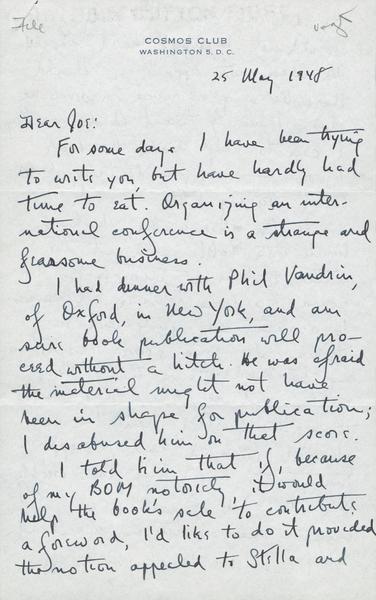 File
COSMOS CLUB
WASHINGTON 5, D.C.
25 May 1948
Dear Joe:
For some days I have been trying
to write you, but have hardly had
time to eat. Organizing an inter-
national conference is a strange and
fearsome business.
I had dinner with Phil Vaudrin,
of Oxford, in New York, and am
sure book publication will pro-
ceed without a hitch. He was afraid
the material might not have
been in shape for publication;
I disabused him on that score.
I told him that if, because
of my BOM notoriety, it would
help the book's sale to contribute
a foreword, I'd like to do it provided
the notion appealed to Stella and